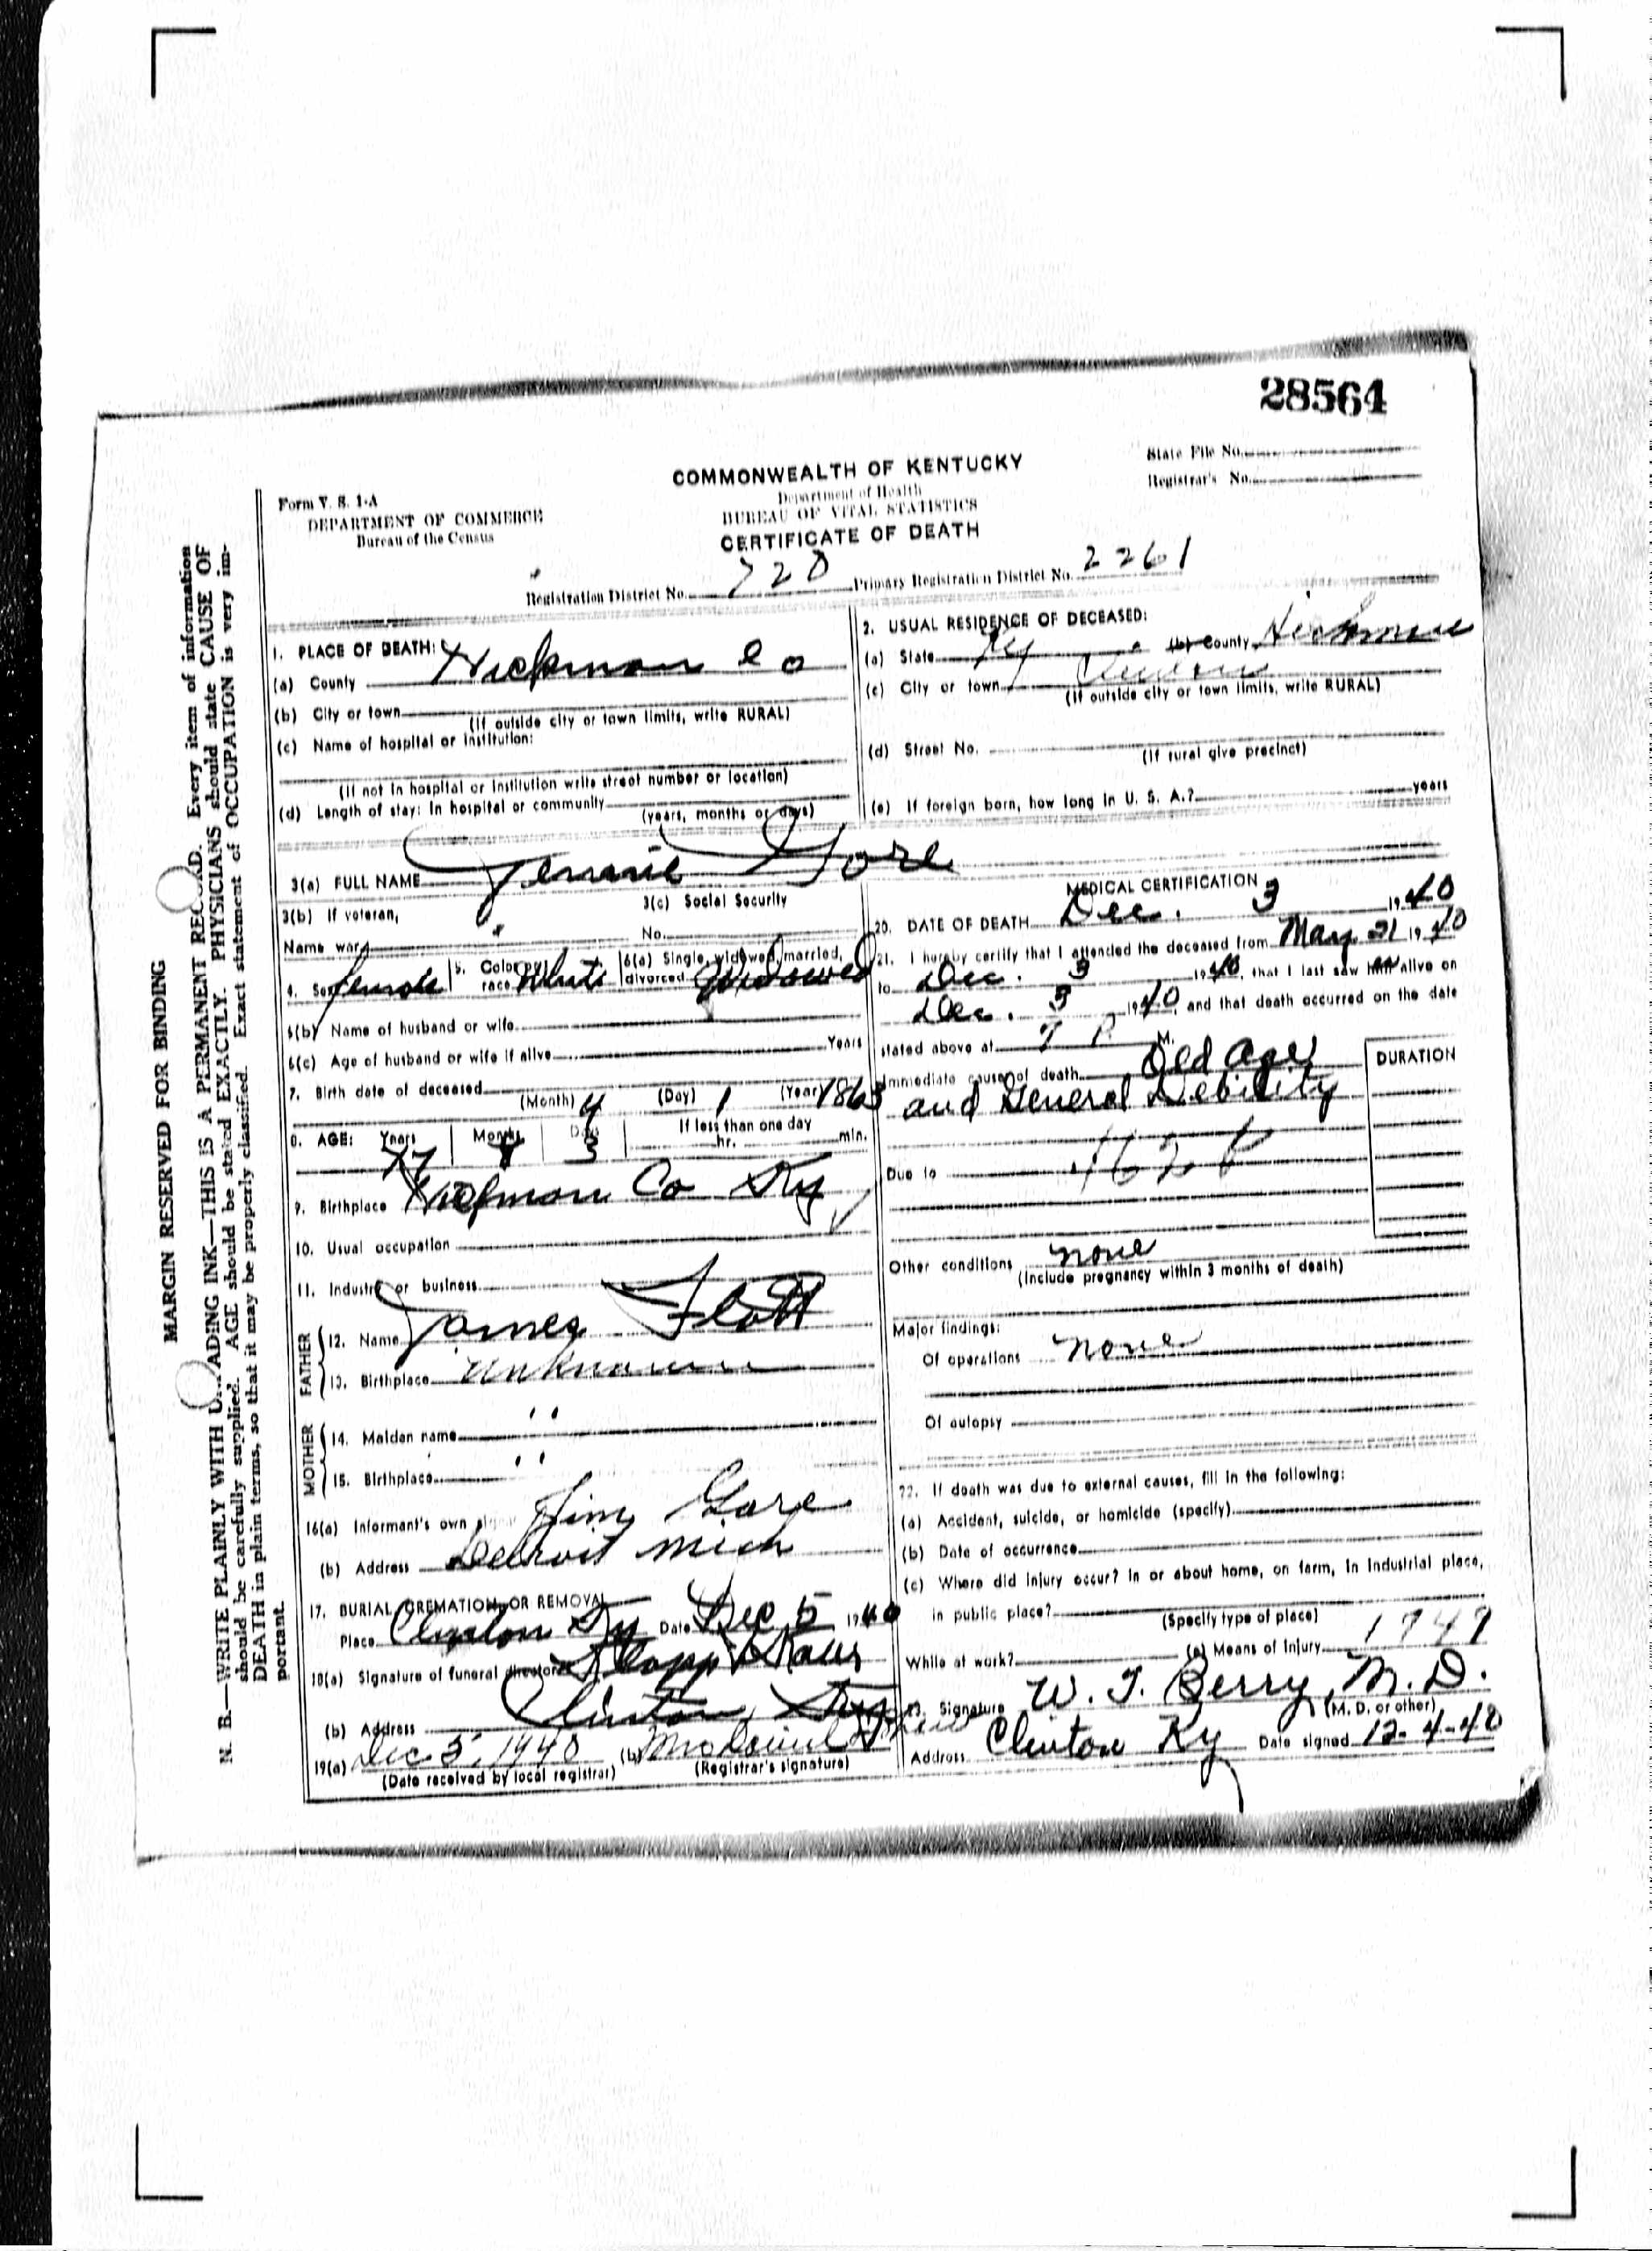 28564
COMMONWEALTH OF KENTUCKY
State File No.
Registrar's No.
Form V. S. 1-A
DEPARTMENT OF COMMERCE
Bureau of the Census
Department of Health
BUREAU OF VITAL STATISTICS
CERTIFICATE OF DEATH
Registration District No. 720 Primary Registration District No. 2261
MARGIN RESERVED FOR BINDING
N. B.—WRITE PLAINLY WITH UNFADING INK—THIS IS A PERMANENT RECORD. Every item of information
should be carefully supplied. AGE should be stated EXACTLY. PHYSICIANS should state CAUSE OF
DEATH in plain terms, so that it may be properly classified. Exact statement of OCCUPATION is very im-
portant.
1. PLACE OF DEATH:
(a) County Hickman Co
(b) City or town
(If outside city or town limits, write RURAL)
(c) Name of hospital or institution:
(If not in hospital or institution write street number or location)
(d) Length of stay: In hospital or community
(years, months or days)
2. USUAL RESIDENCE OF DECEASED:
(a) State Ky (b) County Hickman
(c) City or town Clinton
(If outside city or town limits, write RURAL)
(d) Street No.
(If rural give precinct)
(e) If foreign born, how long in U. S. A.? years
3(a) FULL NAME Jennie Gore
3(b) If veteran,
Name war
3(c) Social Security
No.
4. Sex female 5. Color or race White 6(a) Single, widowed, married, divorced Widowed
6(b) Name of husband or wife
6(c) Age of husband or wife if alive Years
7. Birth date of deceased
(Month) 4 (Day) 1 (Year) 1863
8. AGE: Years 77 Months Days 3 If less than one day
hr. min.
9. Birthplace Hickman Co Ky
10. Usual occupation
11. Industry or business
FATHER
12. Name James Flatt
13. Birthplace unknown
MOTHER
14. Maiden name ''
15. Birthplace ''
16(a) Informant's own Jim Gore
(b) Address Detroit Mich
17. BURIAL, CREMATION, OR REMOVAL
Place Clinton Ky Date Dec 5 1940
18(a) Signature of funeral director
(b) Address Clinton, Ky
19(a) Dec 5, 1940 (b)
(Date received by local registrar) (Registrar's signature)
MEDICAL CERTIFICATION
20. DATE OF DEATH Dec. 3 1940
21. I hereby certify that I attended the deceased from May 21 1940
to Dec. 3 1940, that I last saw her alive on
Dec. 3 1940, and that death occurred on the date
stated above at 7 P. M.
Immediate cause of death Old Age
and General Debility
DURATION
Due to 162b
Other conditions none
(Include pregnancy within 3 months of death)
Major findings:
Of operations none
Of autopsy
22. If death was due to external causes, fill in the following:
(a) Accident, suicide, or homicide (specify)
(b) Date of occurrence
(c) Where did injury occur? In or about home, on farm, in industrial place,
in public place?
(Specify type of place)
While at work? (e) Means of injury 1749
23. Signature W. J. Berry, M. D.
(M. D. or other)
Address Clinton Ky Date signed 12-4-40